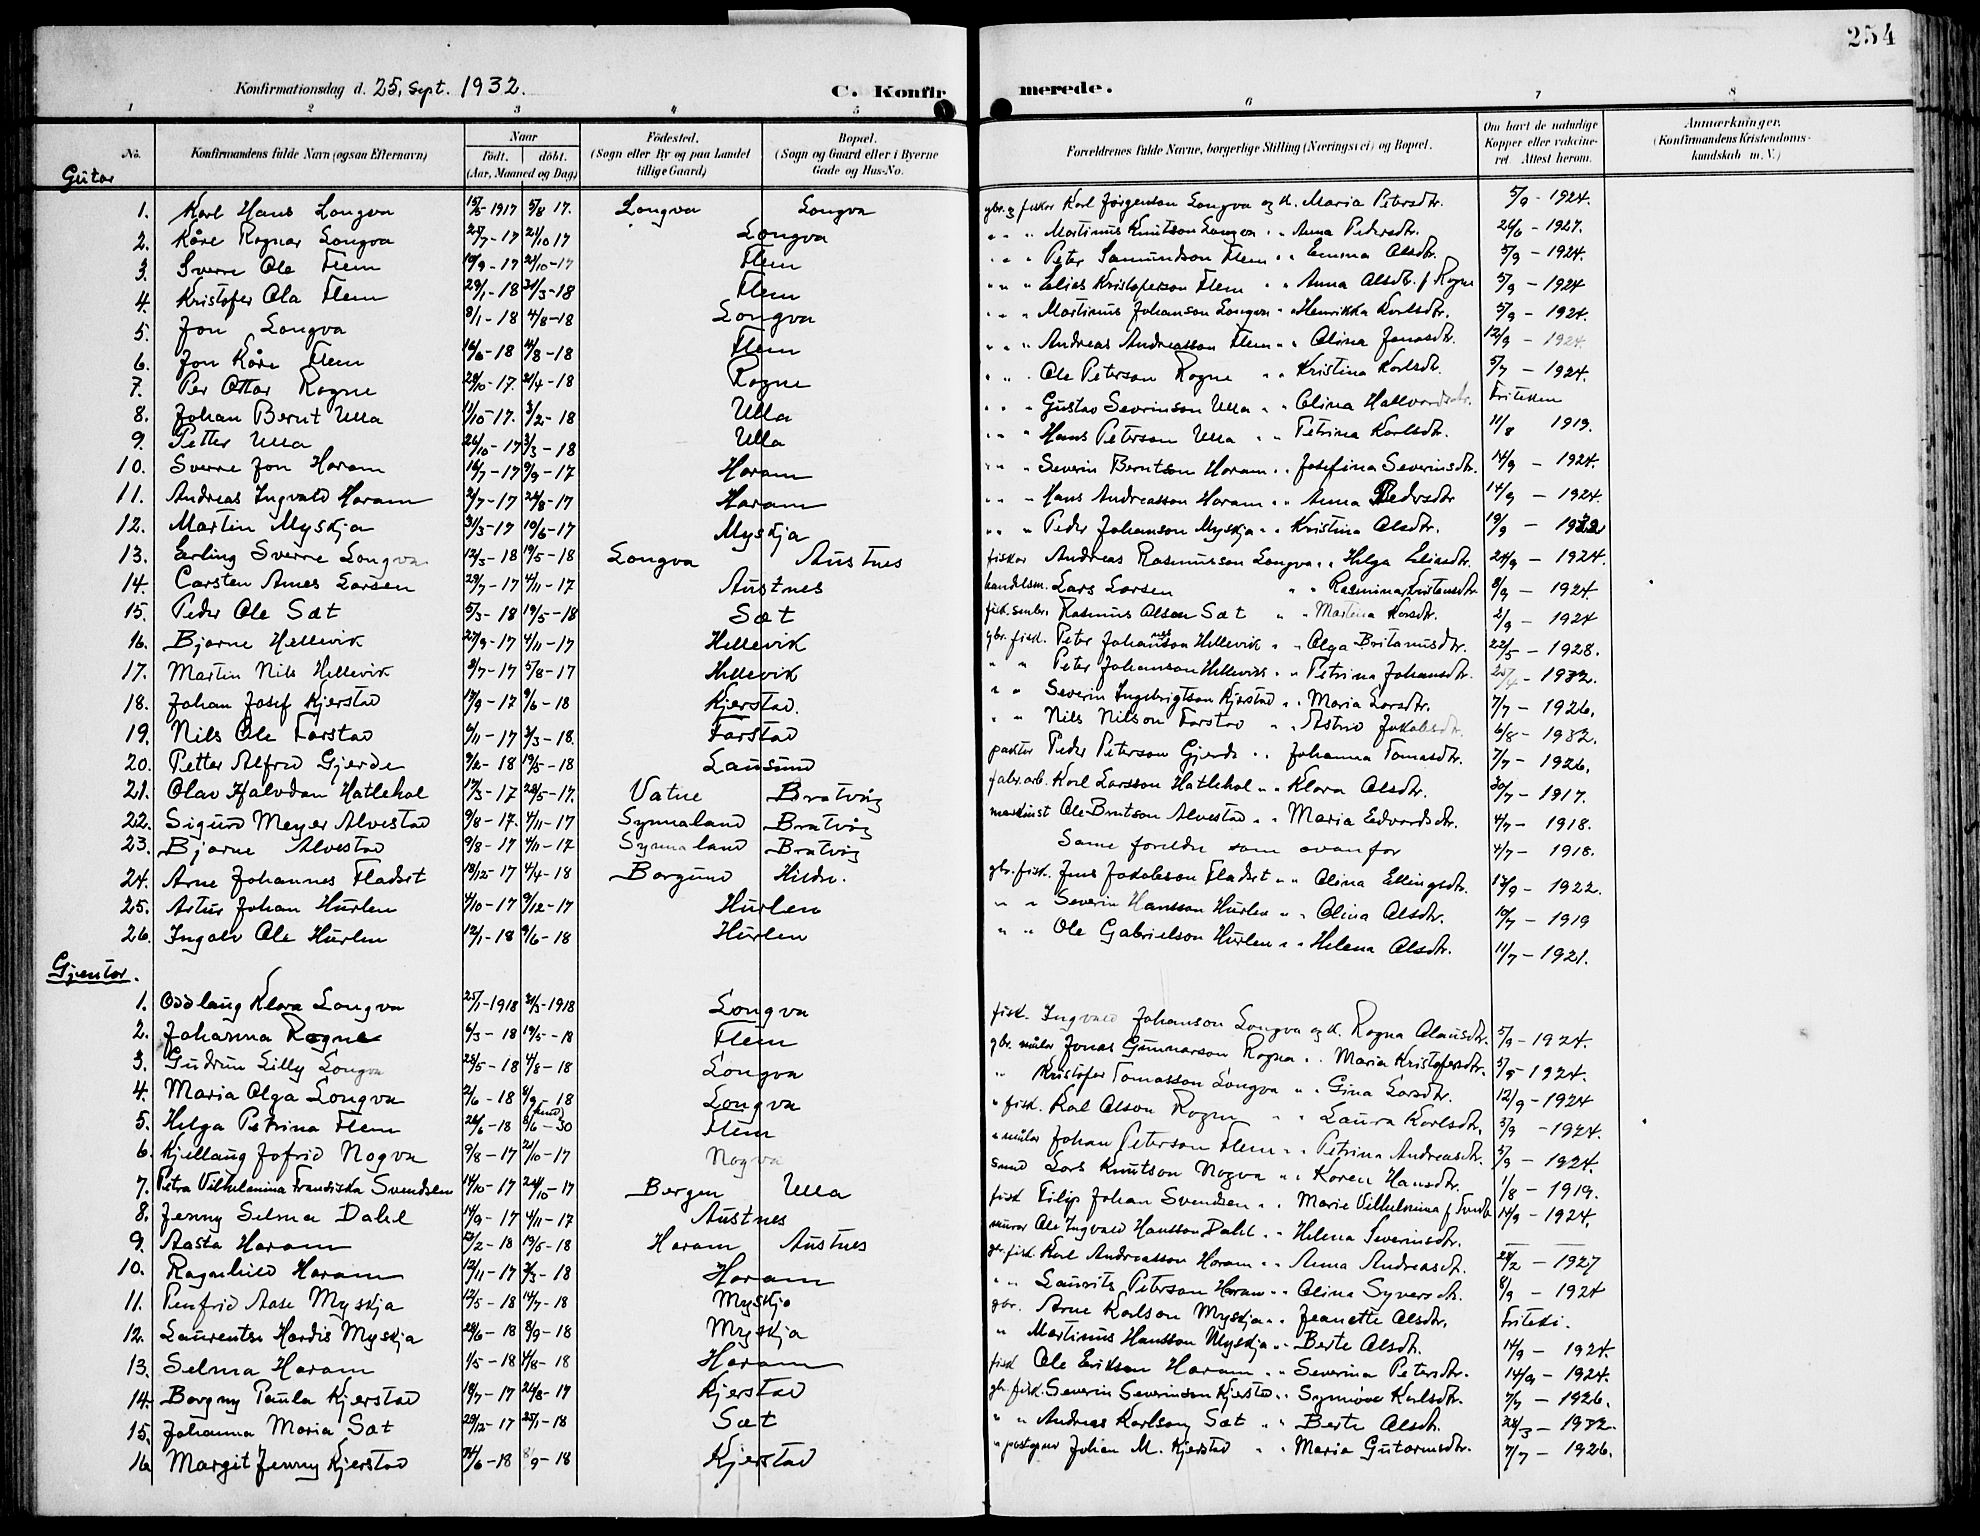 254
Konfirmationsdag d. 25. Sept. 1932.
C. Konfirmerede.
1 2 3 4 5 6 7 8
No. Konfirmandens fulde Navn (ogsaa Efternavn) Naar født. døbt. (Aar, Maaned og Dag) Fødested. (Sogn eller By og paa Landet tillige Gaard) Bopæl. (Sogn og Gaard eller i Byerne Gade og Hus-No. Forældrenes fulde Navne, borgerlige Stilling (Næringsvei) og Bopæl. Om havt de naturlige Kopper eller vaccineret. Attest herom. Anmærkninger. (Konfirmandens Kristendomskundskab m. V.)
Gutar
1. Karl Hans Longva 15/5-1917 5/8 17. Longva Longva gbr. og fiskar Karl Jørgenson Longva og k. Maria Petersdtr. 5/9 - 1924.
2. Kåre Ragnar Longva 25/7-17 21/10 17 Longva " " " Martinus Knutson Longva " " Anna Pedersdtr. 26/6 - 1927.
3. Sverre Ole Flem 19/9-17 21/10-17 Flem " " " Peter Samundson Flem " " Emma Olsdtr. 5/9 - 1924.
4. Kristofer Ola Flem 29/1-18 31/3-18 Flem " " " Elias Kristoferson Flem " " Anna Olsdtr. f. Rogne 5/9 - 1924
5. Jon Longva 8/1-18 4/8-18 Longva " " " Martinus Johanson Longva " " Henrikka Karlsdtr. 5/9 - 1924.
6. Jon Kåre Flem 16/6-18 4/8-18 Flem " " " Andreas Andreasson Flem " " Olina Jonasdtr. 12/9 - 1924.
7. Per Ottar Rogne 28/10-17. 21/4-18 Rogne " " " Ole Peterson Rogne " " Kristina Karlsdtr. 5/7 - 1924.
8. Johan Bernt Ulla 11/10-17. 3/2-18 Ulla " " " Gustav Severinson Ulla " " Olina Hallvardsdtr. Friteken
9. Petter Ulla 26/10-17 3/3-18 Ulla " " " Hans Peterson Ulla " " Petrina Karlsdtr. 11/8 1919.
10. Sverre Jon Haram 16/7-17 9/9-17 Haram " " " Severin Berntsen Haram " " Josefina Severinsdtr. 14/9 - 1924.
11. Andreas Ingvald Haram 2/7-17 26/8-17 Haram " " " Hans Andreasson Haram " " Anna Pedersdtr 14/9 - 1924.
12. Martin Myskja 31/3-17 10/6-17 Myskja " " " Peder Johanson Myskja " " Kristina Olsdtr. 19/9 -
13. Erling Sverre Longva 12/3-18 19/5-18 Longva Austnes fiskar Andreas Rasmusson Longva " " Helga Eliasdtr. 24/9 - 1924.
14. Carsten Arnes Larsen 29/7-17 4/11-17 Austnes handelsm. Lars Larsen " " Rasmina Kristensdtr 8/9 - 1924
15. Peder Ole Sæt 5/3-18 19/5-18 Sæt Rasmus Olsen Sæt " " Martina Karsdtr. 2/9 - 1924
16. Bjarne Hellevik 27/9-17 4/11-17 Hellevik gbr. fisk. Peter Johannson Hellevik " " Olga Britanusdtr. 22/5 - 1928.
17. Martin Nils Hellevik 9/7-17 5/8-17 Hellevik " " Peter Johanson Hellevik " " Petrina Johansdtr. 1932.
18. Johan Josef Kjerstad 17/9-17 9/6-18 Kjerstad. " " Severin Ingebrigtson Kjerstad " " Maria Larsdtr. 7/7 - 1926.
19. Nils Ole Farstad 6/11-17 3/3-18. Farstad " " Nils Nilson Farstad " " Astrid Jakobsdtr. 6/8 - 1932.
20. Petter Alfred Gjerde 9/2-18 19/5-18 Lausund pakter Peder Peterson Gjerde " " Johanna Tomasdtr. 7/7 - 1926.
21. Olav Halvdan Hatlehol 17/3-17 28/5-17. Vatne Bratvåg fabr.arb. Karl Larsson Hatlehol " " Klara Olsdtr. 30/7 - 1917.
22. Sigurd Meyer Alvestad 9/8-17. 4/11-17 Synnaland Bratvåg maskinist Ole Berntson Alvestad " " Maria Edvardsdtr. 4/7 - 1918.
23. Bjarne Alvestad 9/8-17 4/11-17 Synnaland Bratvåg Same foreldre som ovanfor 4/7 - 1918.
24. Arne Johannes Fladset 18/12-17 4/4-18 Borgund Hildre. gbr. fisk. Jens Jakobson Fladset " " Olina Ellingsdtr. 17/9 - 1922.
25. Artur Johan Hurlen 4/10-17 9/12-17 Hurlen " " Severin Hansson Hurlen " " Olina Olsdtr. 10/7 - 1919
26. Ingolv Ole Hurlen 12/1-18 9/6-18 Hurlen " " Ole Gabrielson Hurlen " " Helena Olsdtr. 11/7 - 1921.
Gjentor.
1. Oddlaug Klara Longva 25/1-1918 31/3-1918 Longva fisk. Ingvald Johanson Longva og k. Ragna Olausdtr. 5/9 - 1924.
2. Johanna Rogne 6/3-18 19/5-18 Flem gbr. målar Jonas Gunnarson Rogna " " Maria Kristofersdtr. 5/9 - 1924.
3. Gudrun Lilly Longva 25/5-18 4/8-18 Longva " Kristofer Tomasson Longva " " Gina Larsdtr. 12/9 - 1924
4. Maria Olga Longva 2/6-18 8/9-18 Longva " fisk. Karl Olson Rogne " " Laura Karlsdtr. 5/9 - 1924.
5. Helga Petrina Flem 26/6-18 8/6-30 Flem " målar Johan Peterson Flem " " Petrina Andreasdtr. 5/9 - 1924.
6. Kjellaug Jofrid Nogva 9/8-17 21/10-17 Nogva smed Lars Knutson Nogva " " Karen Hansdtr. 1/8 - 1919.
7. Petra Vilhelmina Fransiska Svendsen 14/10-17 24/10-17 Bergen Ulla fisk Filip Johan Svendsen " " Marie Vilhelmina f. 14/9 - 1924.
8. Jenny Selma Dahl 14/9-17 4/11-17 Austnes murar Ole Ingvald Hansson Dahl " " Helena Severinsdtr. —
9. Aasta Haram 12/2-18 19/5-18 Haram Austnes gbr. fisk. Karl Andreasson Haram " " Anna Andreasdtr. 28/2 - 1927
10. Ragnhild Haram 12/11-17 3/3-18 Haram " " Laurits Peterson Haram " " Olina Syversdtr. 8/9 - 1924
11. Penfrid Aase Myskja 12/5-18 14/7-18 Myskja gbr. Arne Karlson Myskja " " Jeanette Olsdtr. Friteki.
12. Laurentse Hardis Myskja 28/6-18 8/9-18 Myskja " Martinus Hansson Myskja " " Berte Olsdtr. 14/9 - 1924.
13. Selma Haram 1/5-18 4/8-18 Haram fisk Ole Erikson Haram " " Severina Petersdtr. 14/9 - 1924.
14. Borgny Paula Kjerstad 19/7-17 26/8-17 Kjerstad gbr. fisk. Severin Severinson Kjerstad " " Synnøve Karlsdtr. 7/7 - 1926.
15. Johanna Maria Sæt 29/12-17 27/1-18 Sæt " " Andreas Karlson Sæt " " Berte Olsdtr. 28/3 - 1932.
16 Margit Jenny Kjerstad 24/6-18 8/9-18 Kjerstad " postopnar Johan M. Kjerstad " " Maria Gutormsdtr. 7/7 - 1926.